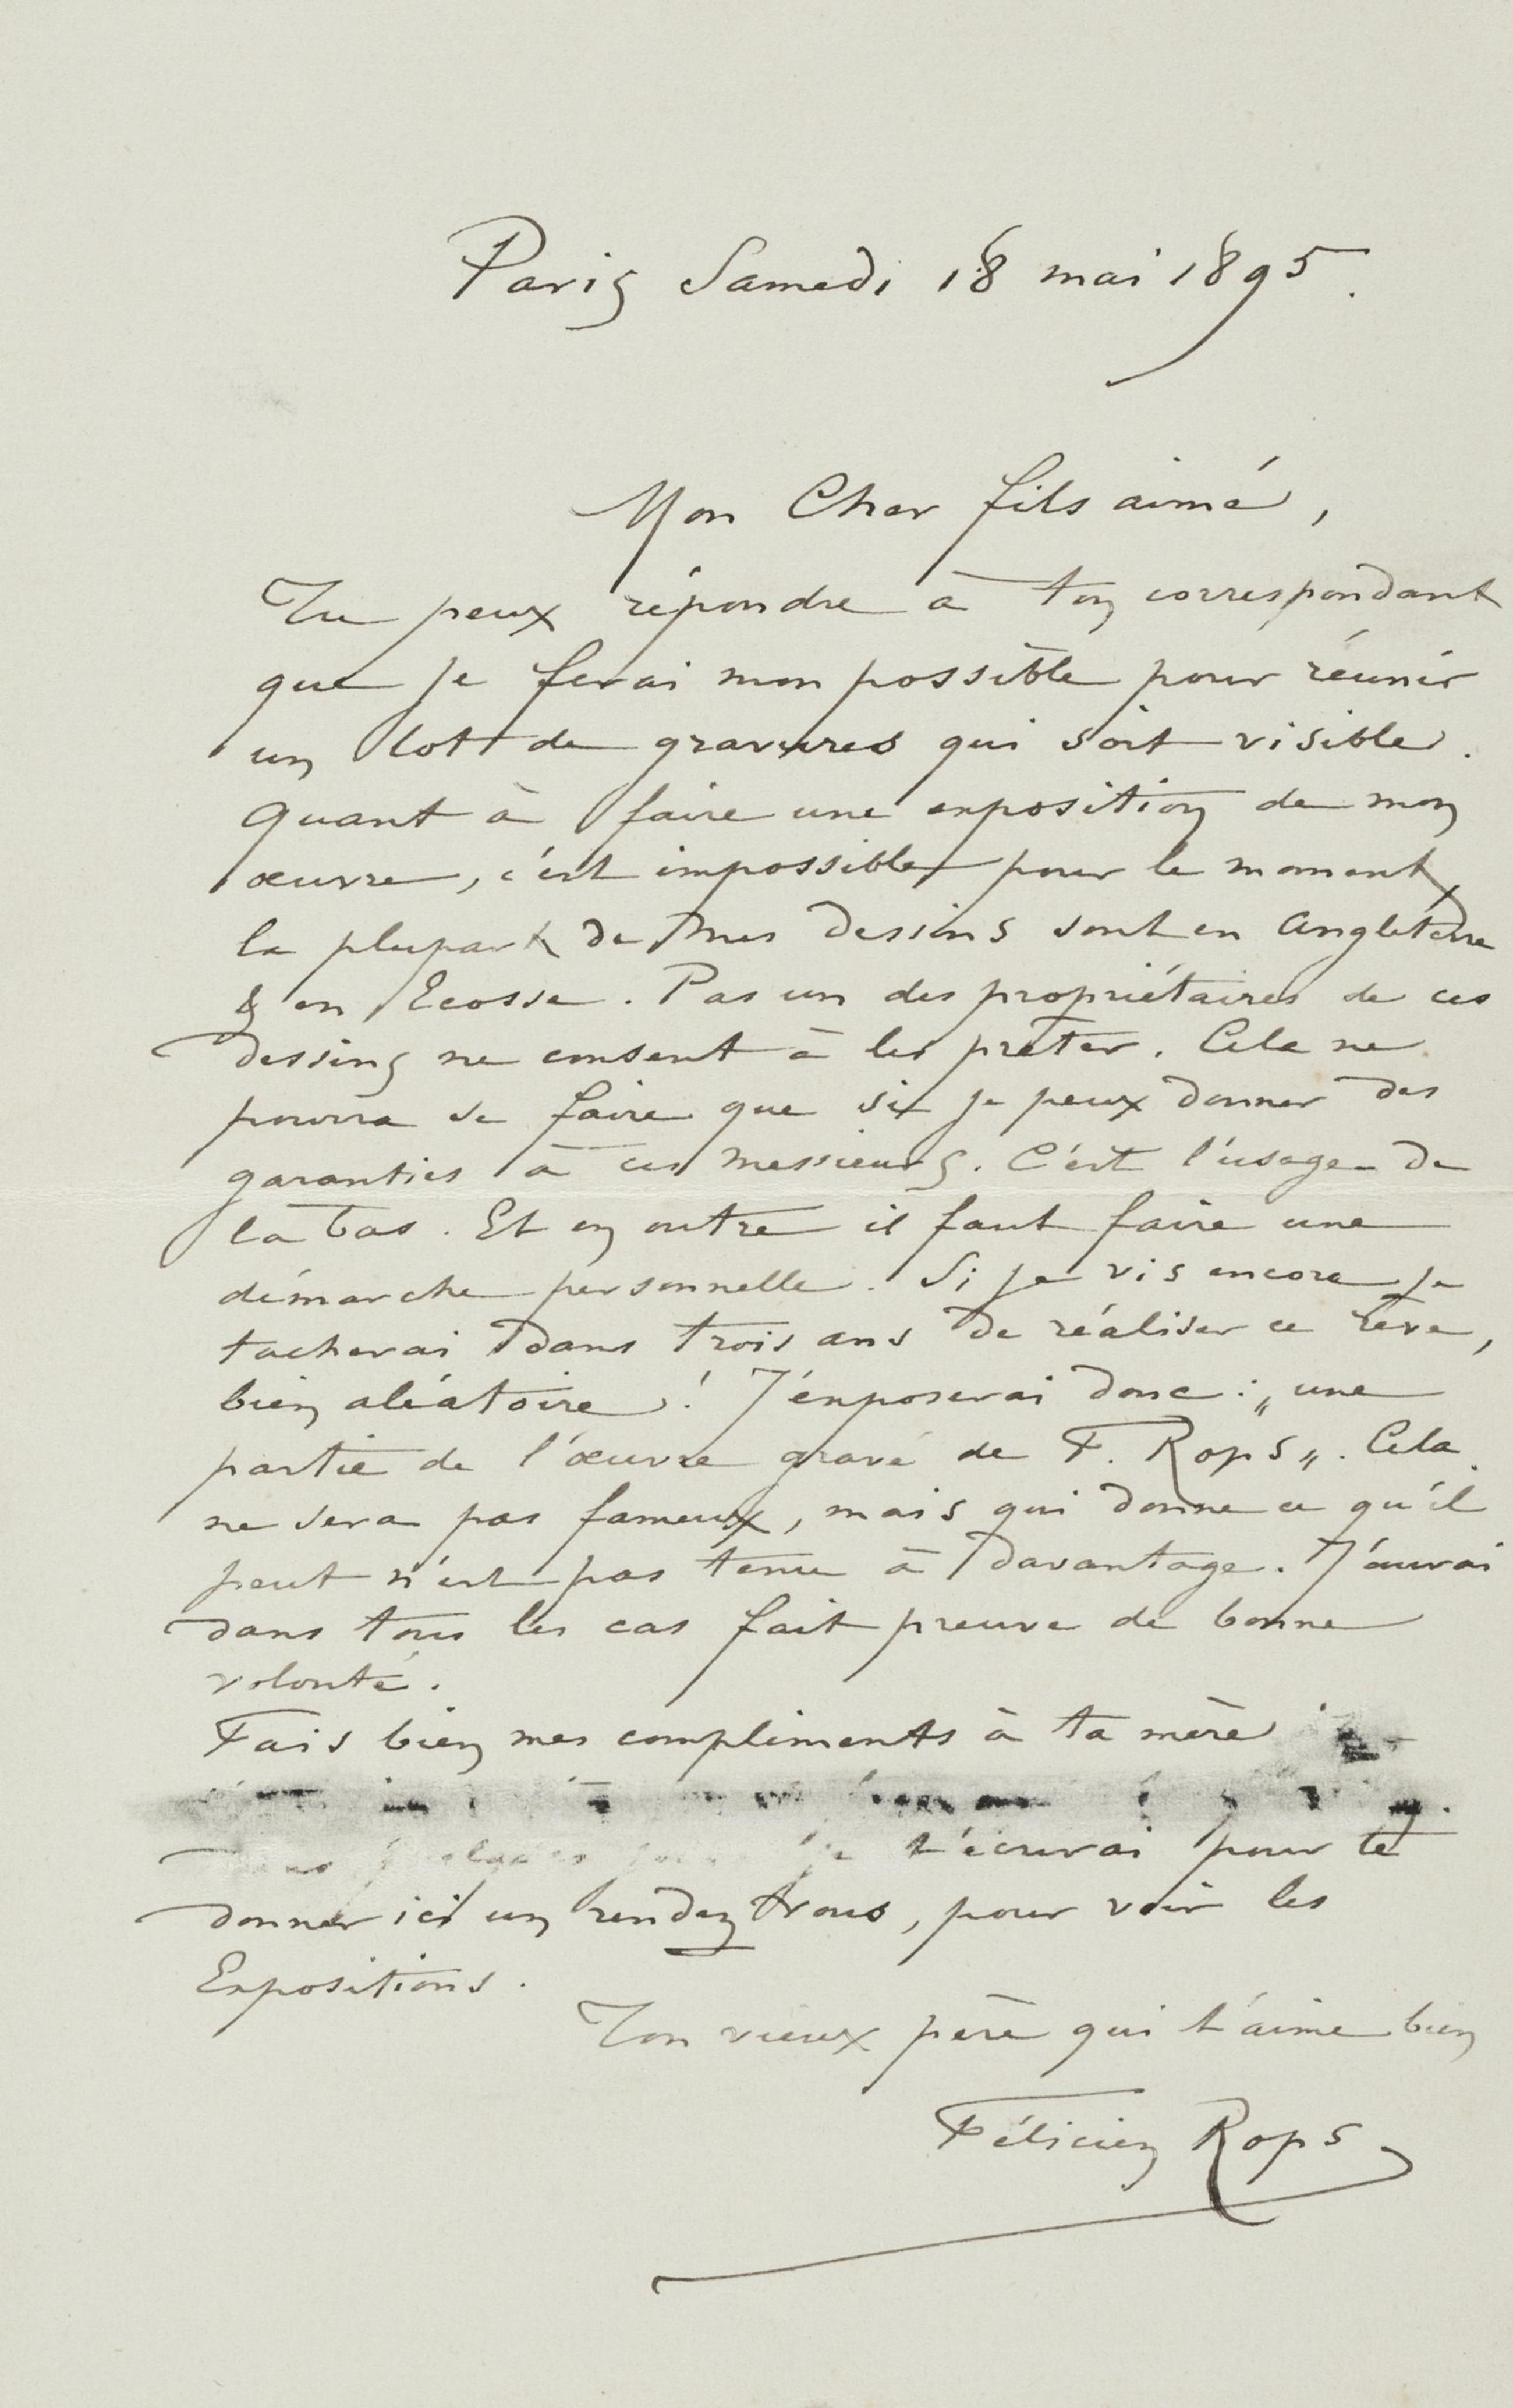 Paris Samedi 18 mai 1895.
Mon Cher fils aimé,
Tu peux répondre à ton correspondant
que je ferai mon possible pour réunir
un lot de gravures qui soit visible.
Quant à faire une exposition de mon
œuvre, c'est impossible pour le moment,
la plupart de mes dessins sont en Angleterre
& en Ecosse. Pas un des propriétaires de ces
dessins ne consent à les prêter. Cela ne
pourra se faire que si je peux donner des
garanties à ces messieurs. C'est l'usage de
là bas. Et en outre il faut faire une
démarche personnelle. Si je vis encore je
tacherai dans trois ans de réaliser ce rêve,
bien aléatoire ! J'exposerai donc : „une
partie de l'œuvre gravé de F. Rops„. Cela
ne sera pas fameux, mais qui donne ce qu'il
peut n'est pas tenu à davantage. J'aurai
dans tous les cas fait preuve de bonne
volonté.
Fais bien mes compliments à ta mère
t'écrirai pour te
donner ici un rendez vous, pour voir les
Expositions.
Ton vieux père qui t'aime bien
Félicien Rops